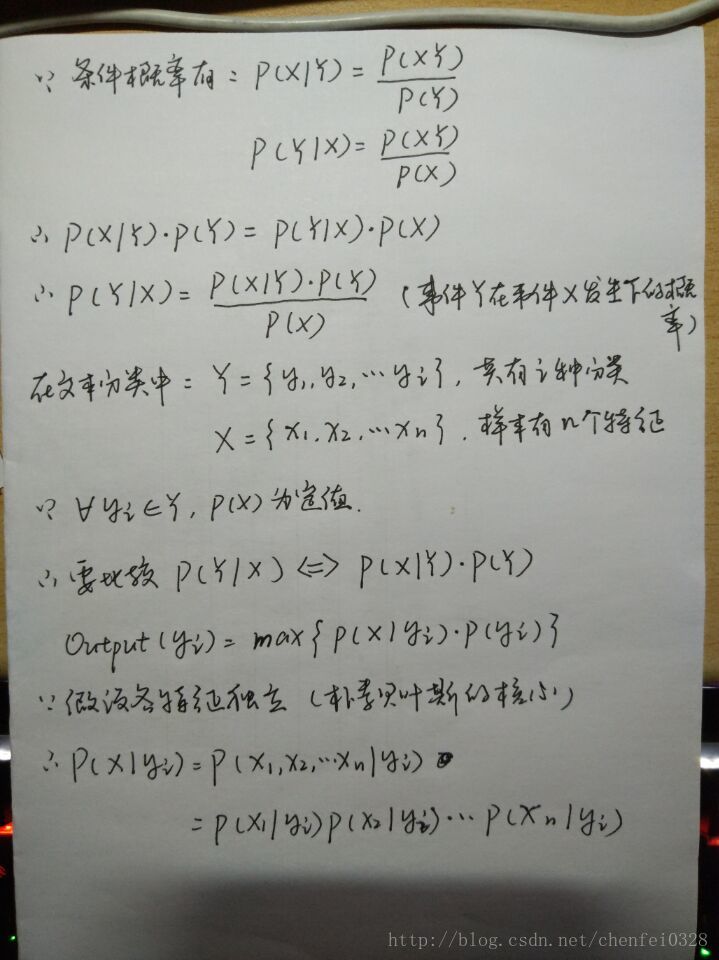 ∵ 条件概率有: P(X|Y) = P(XY) / P(Y)
P(Y|X) = P(XY) / P(X)
∴ P(X|Y)·P(Y) = P(Y|X)·P(X)
∴ P(Y|X) = P(X|Y)·P(Y) / P(X) (事件Y在事件X发生下的概率)
在文本分类中: Y = {y₁, y₂, … yᵢ}, 共有i种分类
X = {x₁, x₂, … xₙ}, 样本有n个特征
∵ ∀yᵢ∈Y, P(X)为定值.
∴ 要比较 P(Y|X) <=> P(X|Y)·P(Y)
Output(yᵢ) = max{P(X|yᵢ)·P(yᵢ)}
∵ 假设各特征独立 (朴素贝叶斯的核心)
∴ P(X|yᵢ) = P(x₁, x₂, … xₙ|yᵢ)
= P(x₁|yᵢ)P(x₂|yᵢ)… P(xₙ|yᵢ)
http://blog.csdn.net/chenfei0328